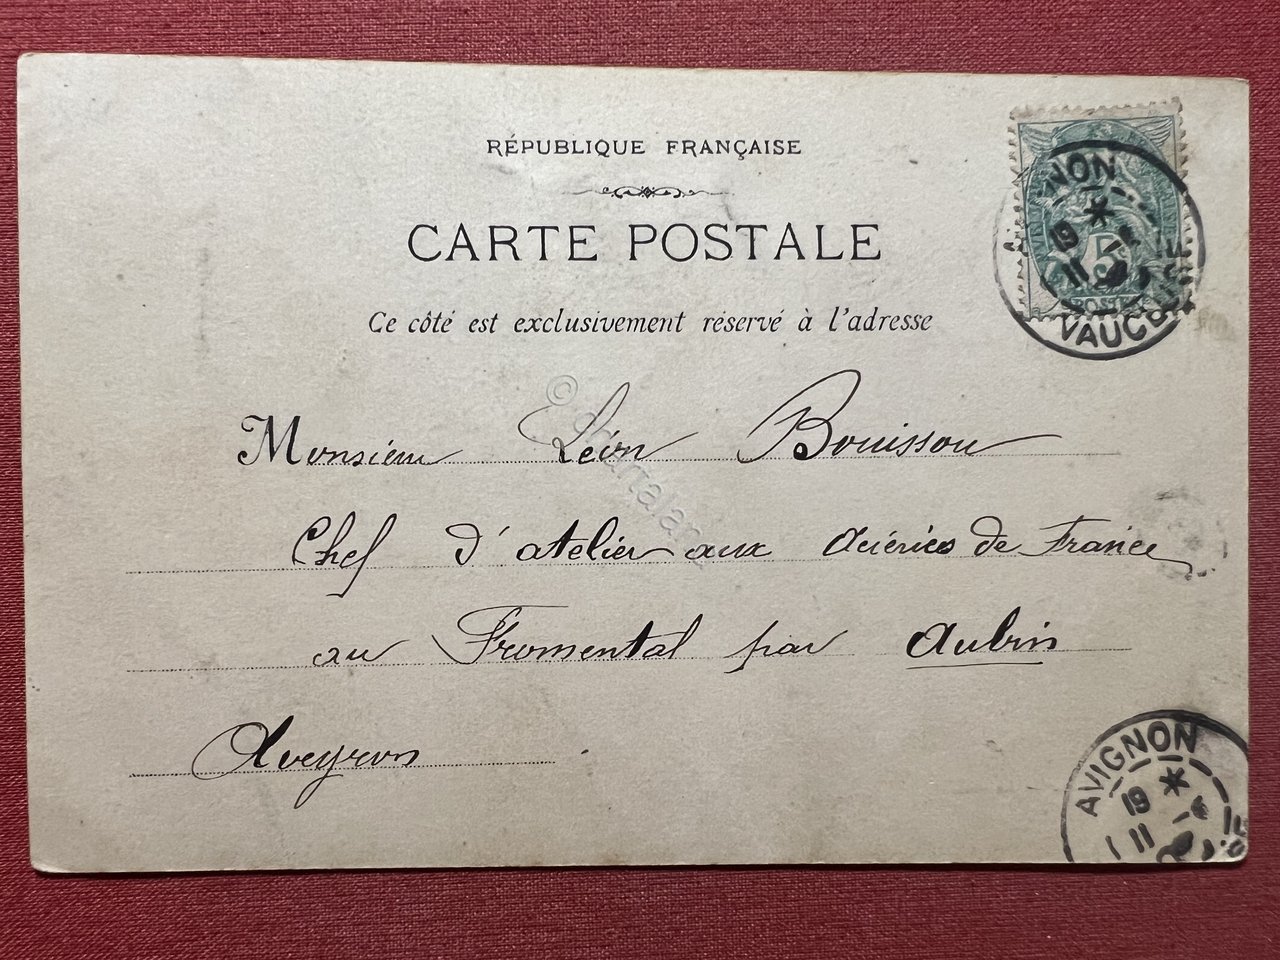 RÉPUBLIQUE FRANÇAISE
CARTE POSTALE
Ce côté est exclusivement réservé à l'adresse
Monsieur Léon Bouissou
Chef d'atelier aux Aciéries de France
au Fromental par Aubin
Aveyron
5
POSTES
NON
19
11
VAUCLUSE
AVIGNON
19
11